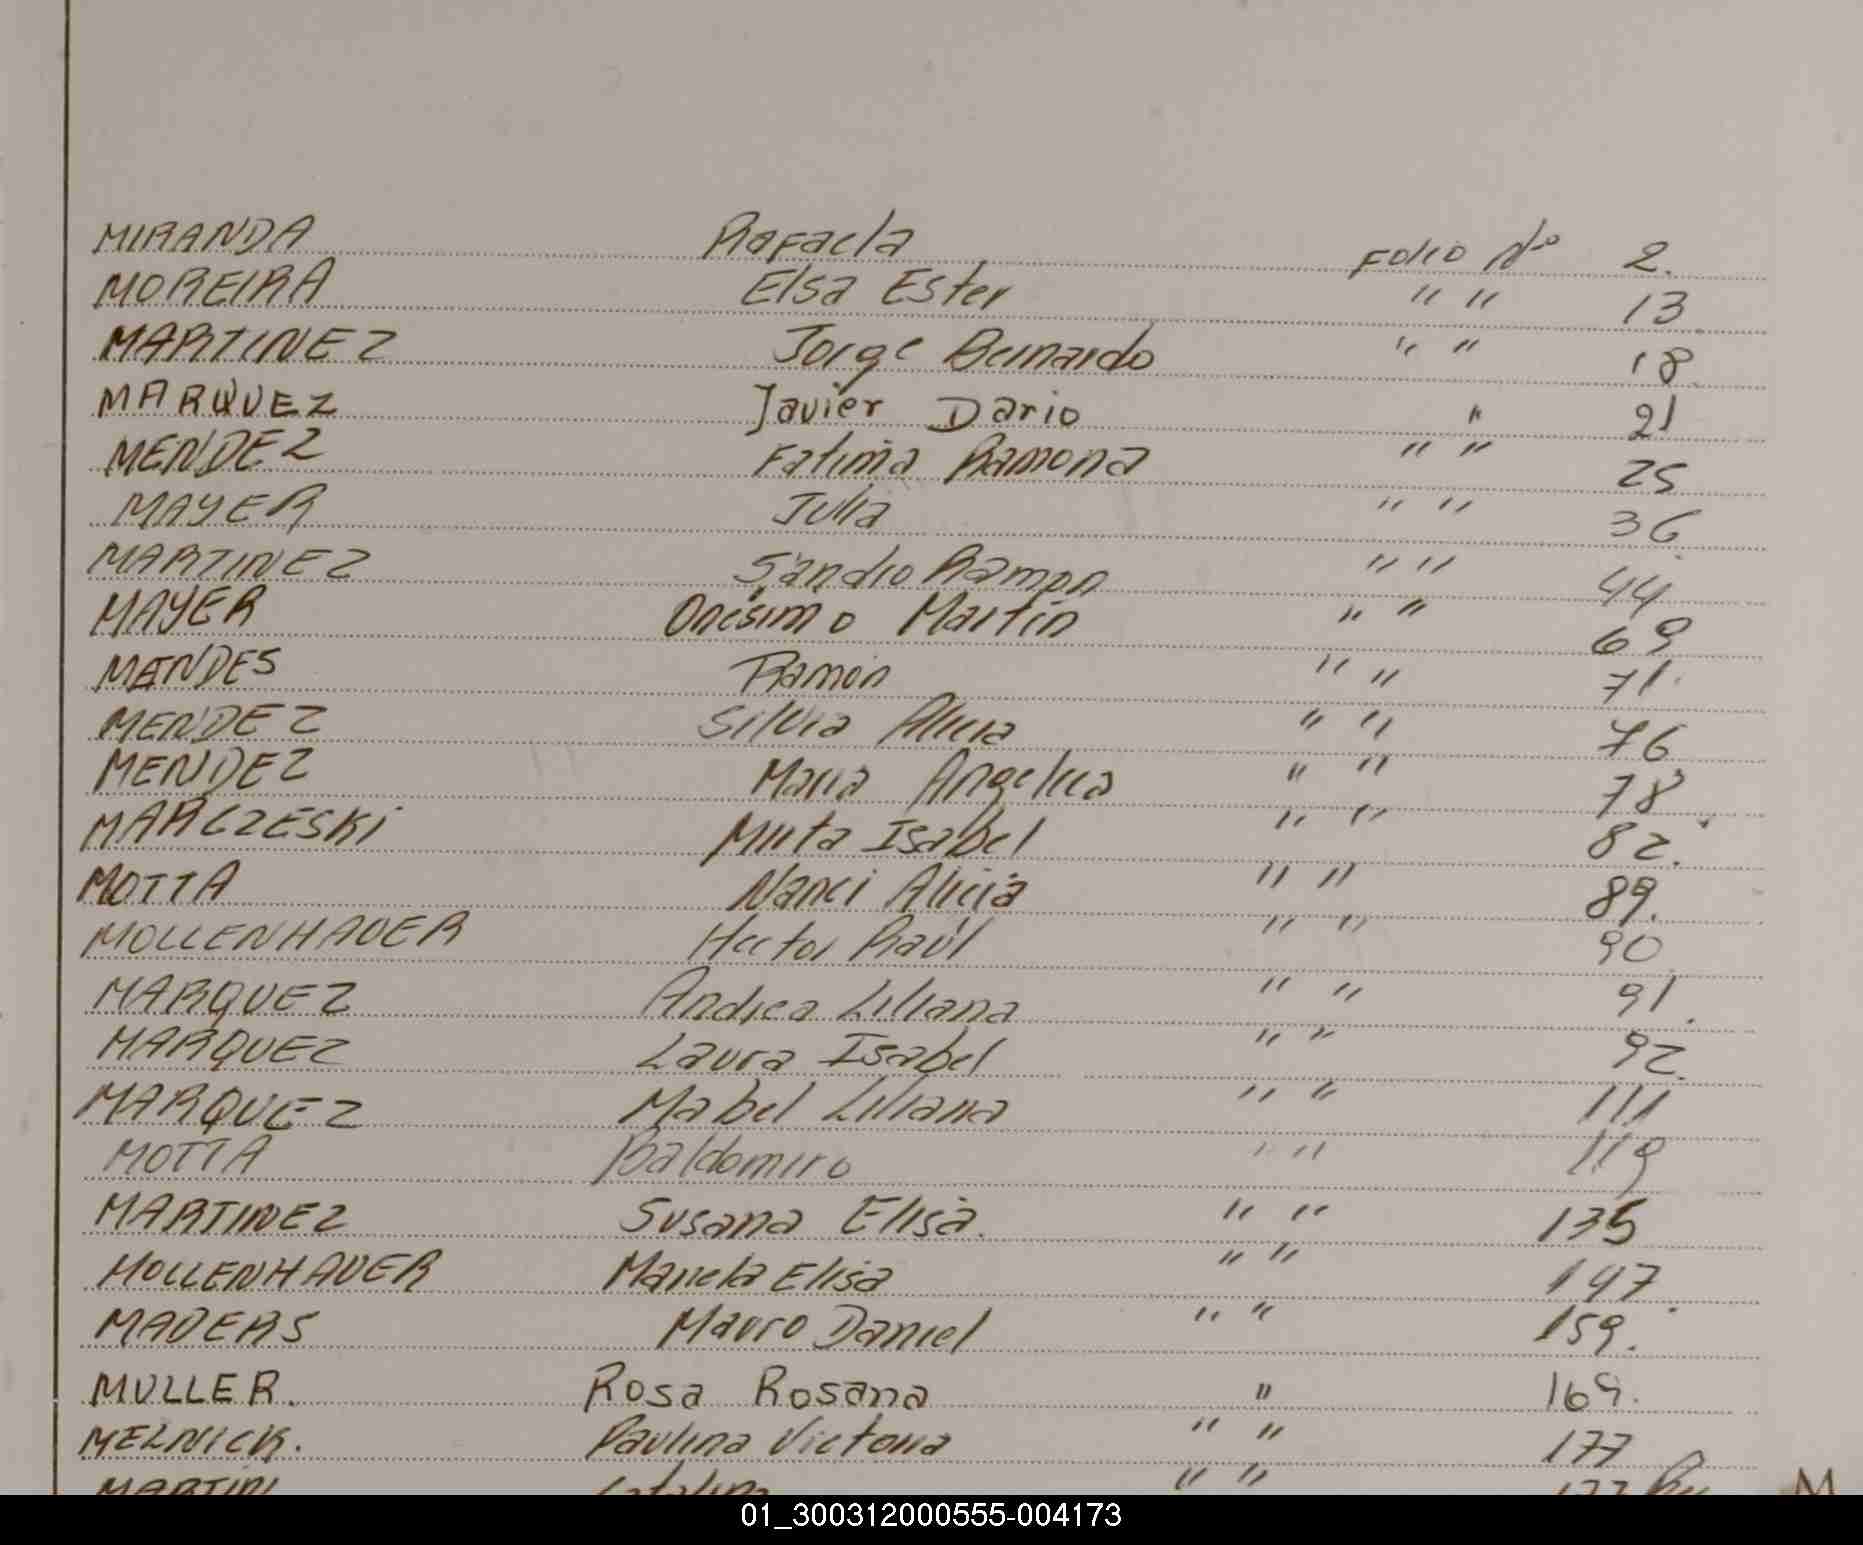 MIRANDA Rafaela Folio Nº 2.
MOREIRA Elsa Ester " " 13
MARTINEZ Jorge Bernardo " " 18.
MARQUEZ Javier Dario " 21
MENDEZ Fatima Ramona " " 25
MAYER Julia " " 36.
MARTINEZ Sandro Ramon " " 44
MAYER Onesimo Martin " " 69
MENDES Ramón " " 71.
MENDEZ Silvia Alicia " " 76
MENDEZ Maria Angelica " " 78
MARCZESKi Mirta Isabel " " 82.
MOTTA Nanci Alicia " " 89.
MOLLENHAUER Hector Raúl " " 90
MARQUEZ Andrea Liliana " " 91.
MARQUEZ Laura Isabel " " 92.
MARQUEZ Mabel Liliana " " 111
MOTTA Baldomiro " " 119
MARTINEZ Susana Elisa. " " 135
MOLLENHAUER Mariela Elisa " " 147.
MADERS Mauro Daniel " " 159.
MULLER. Rosa Rosana " 169.
MELNICK. Paulina Victoria " " 177
MARTINI Catalina " " 177
M
01_300312000555-004173